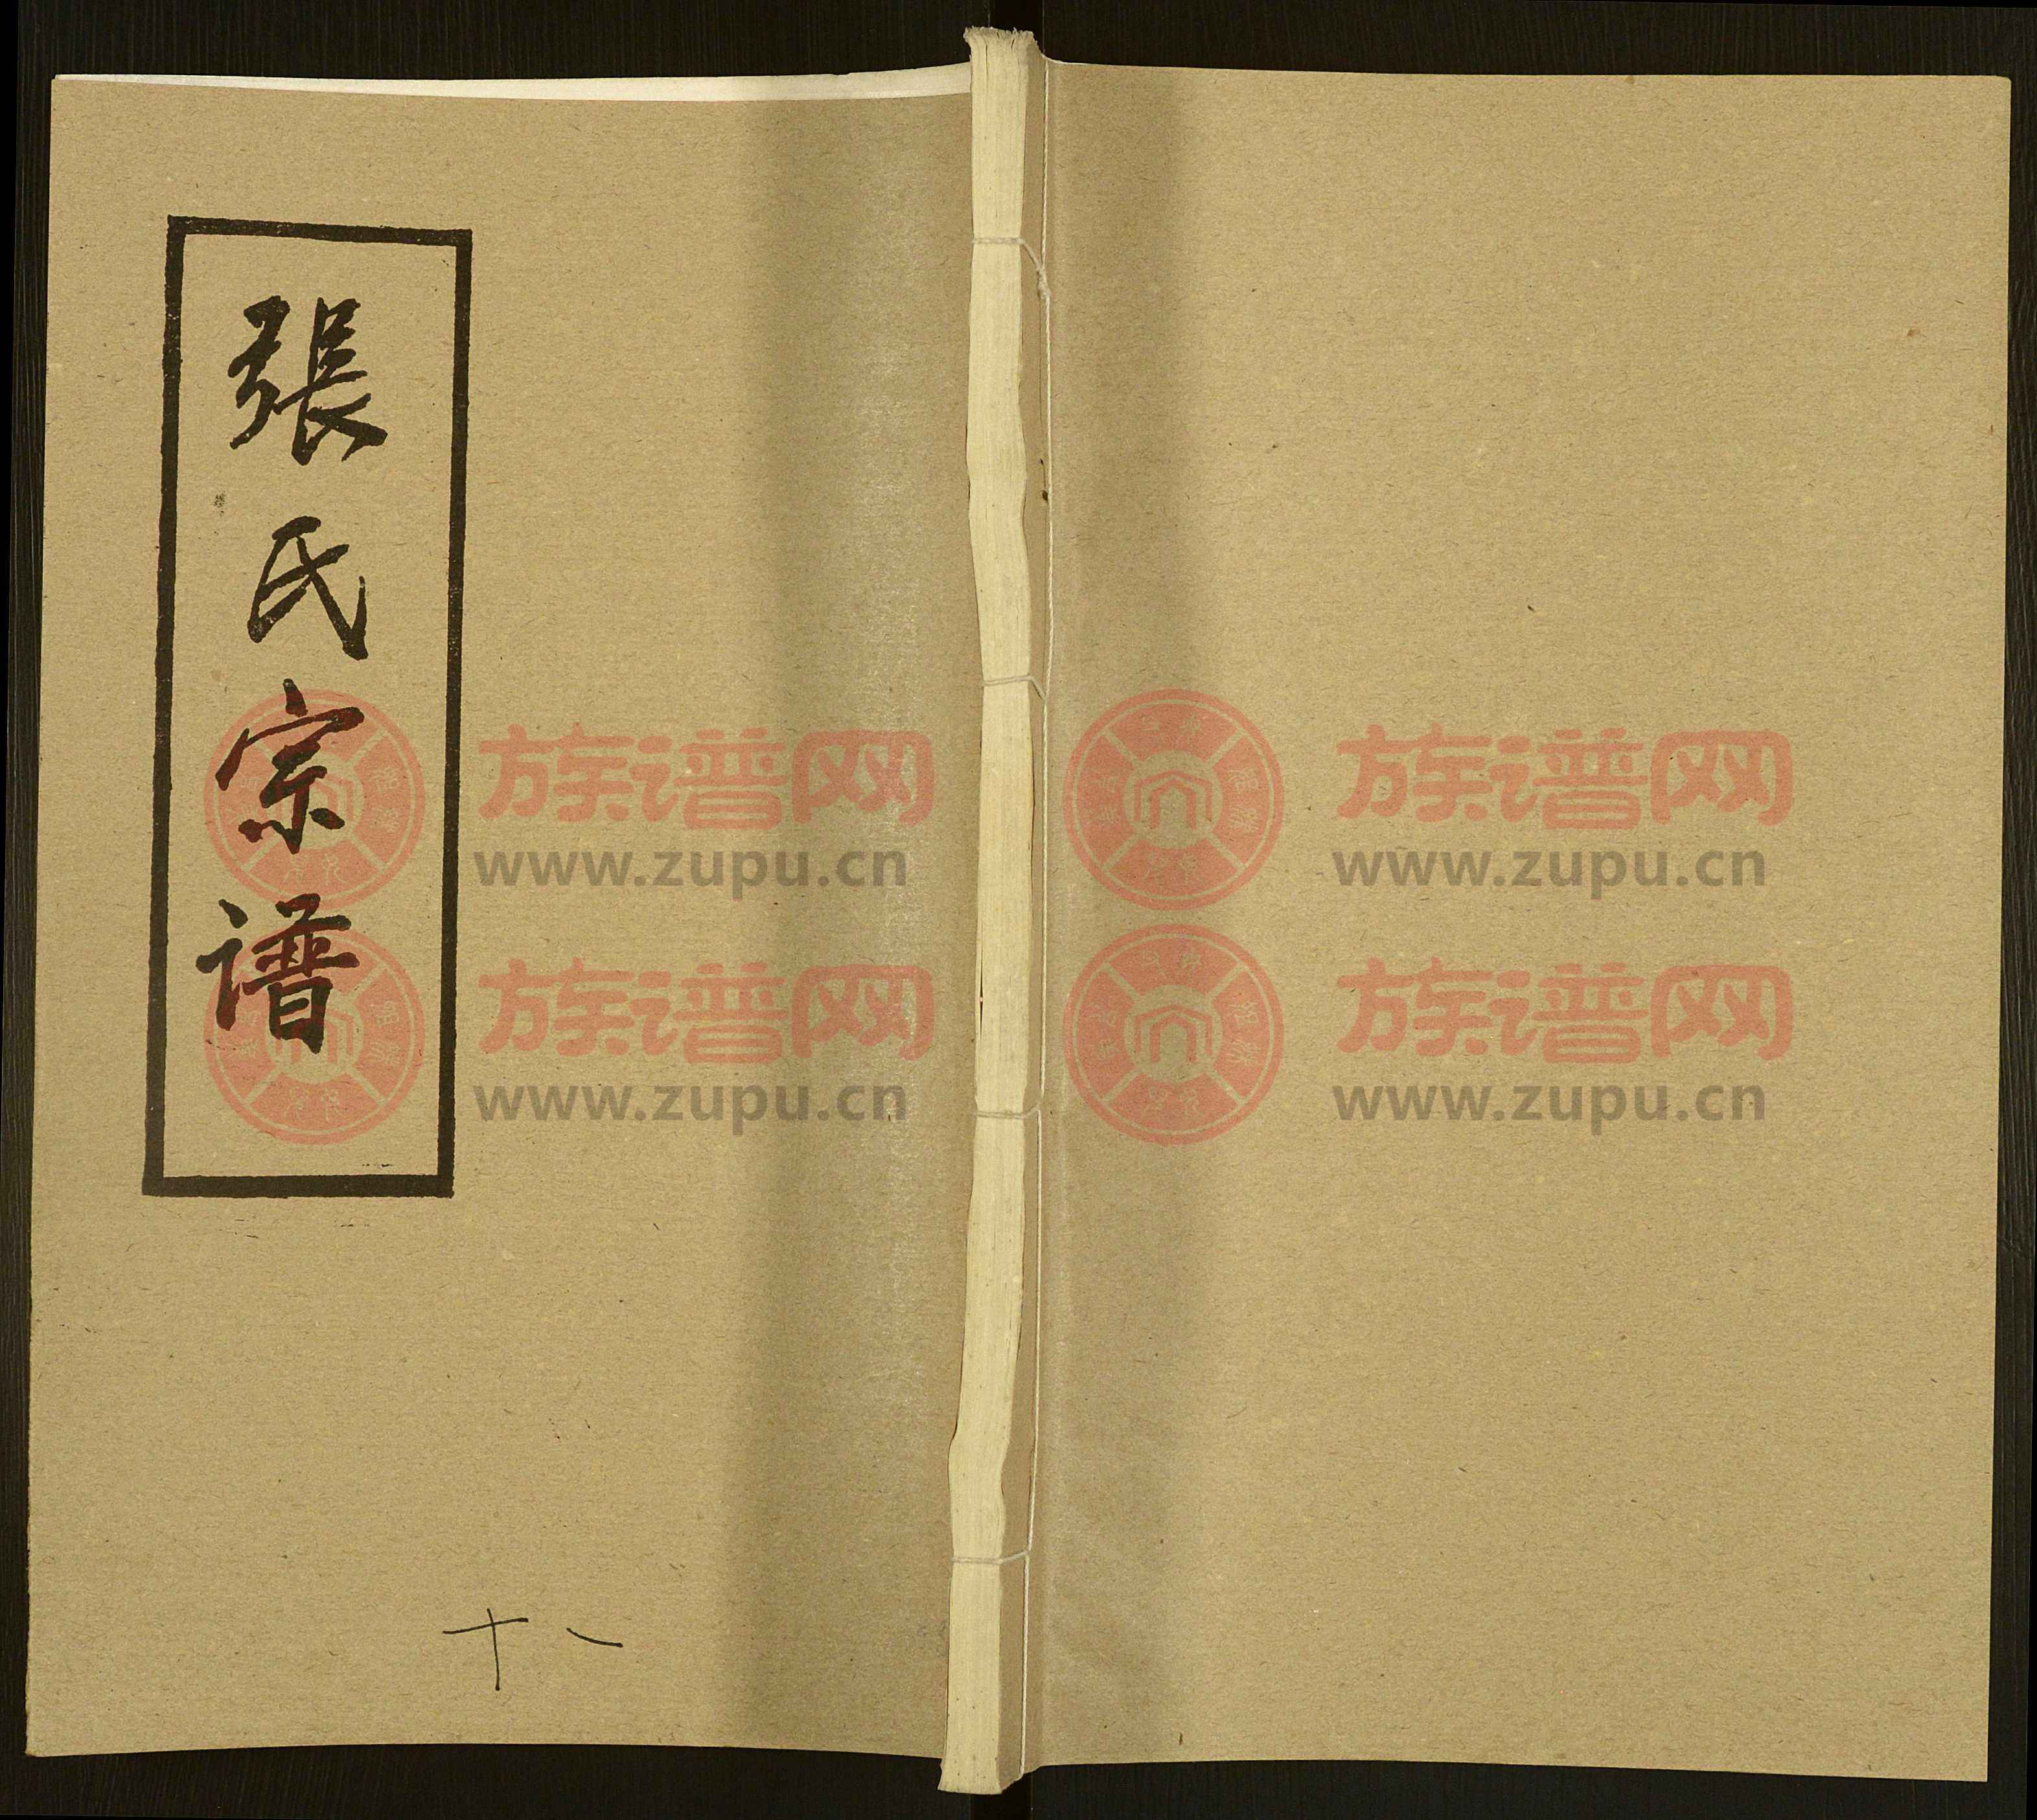 張氏宗谱
族谱网
www.zupu.cn
族谱网
www.zupu.cn
族谱网
www.zupu.cn
族谱网
www.zupu.cn
十一